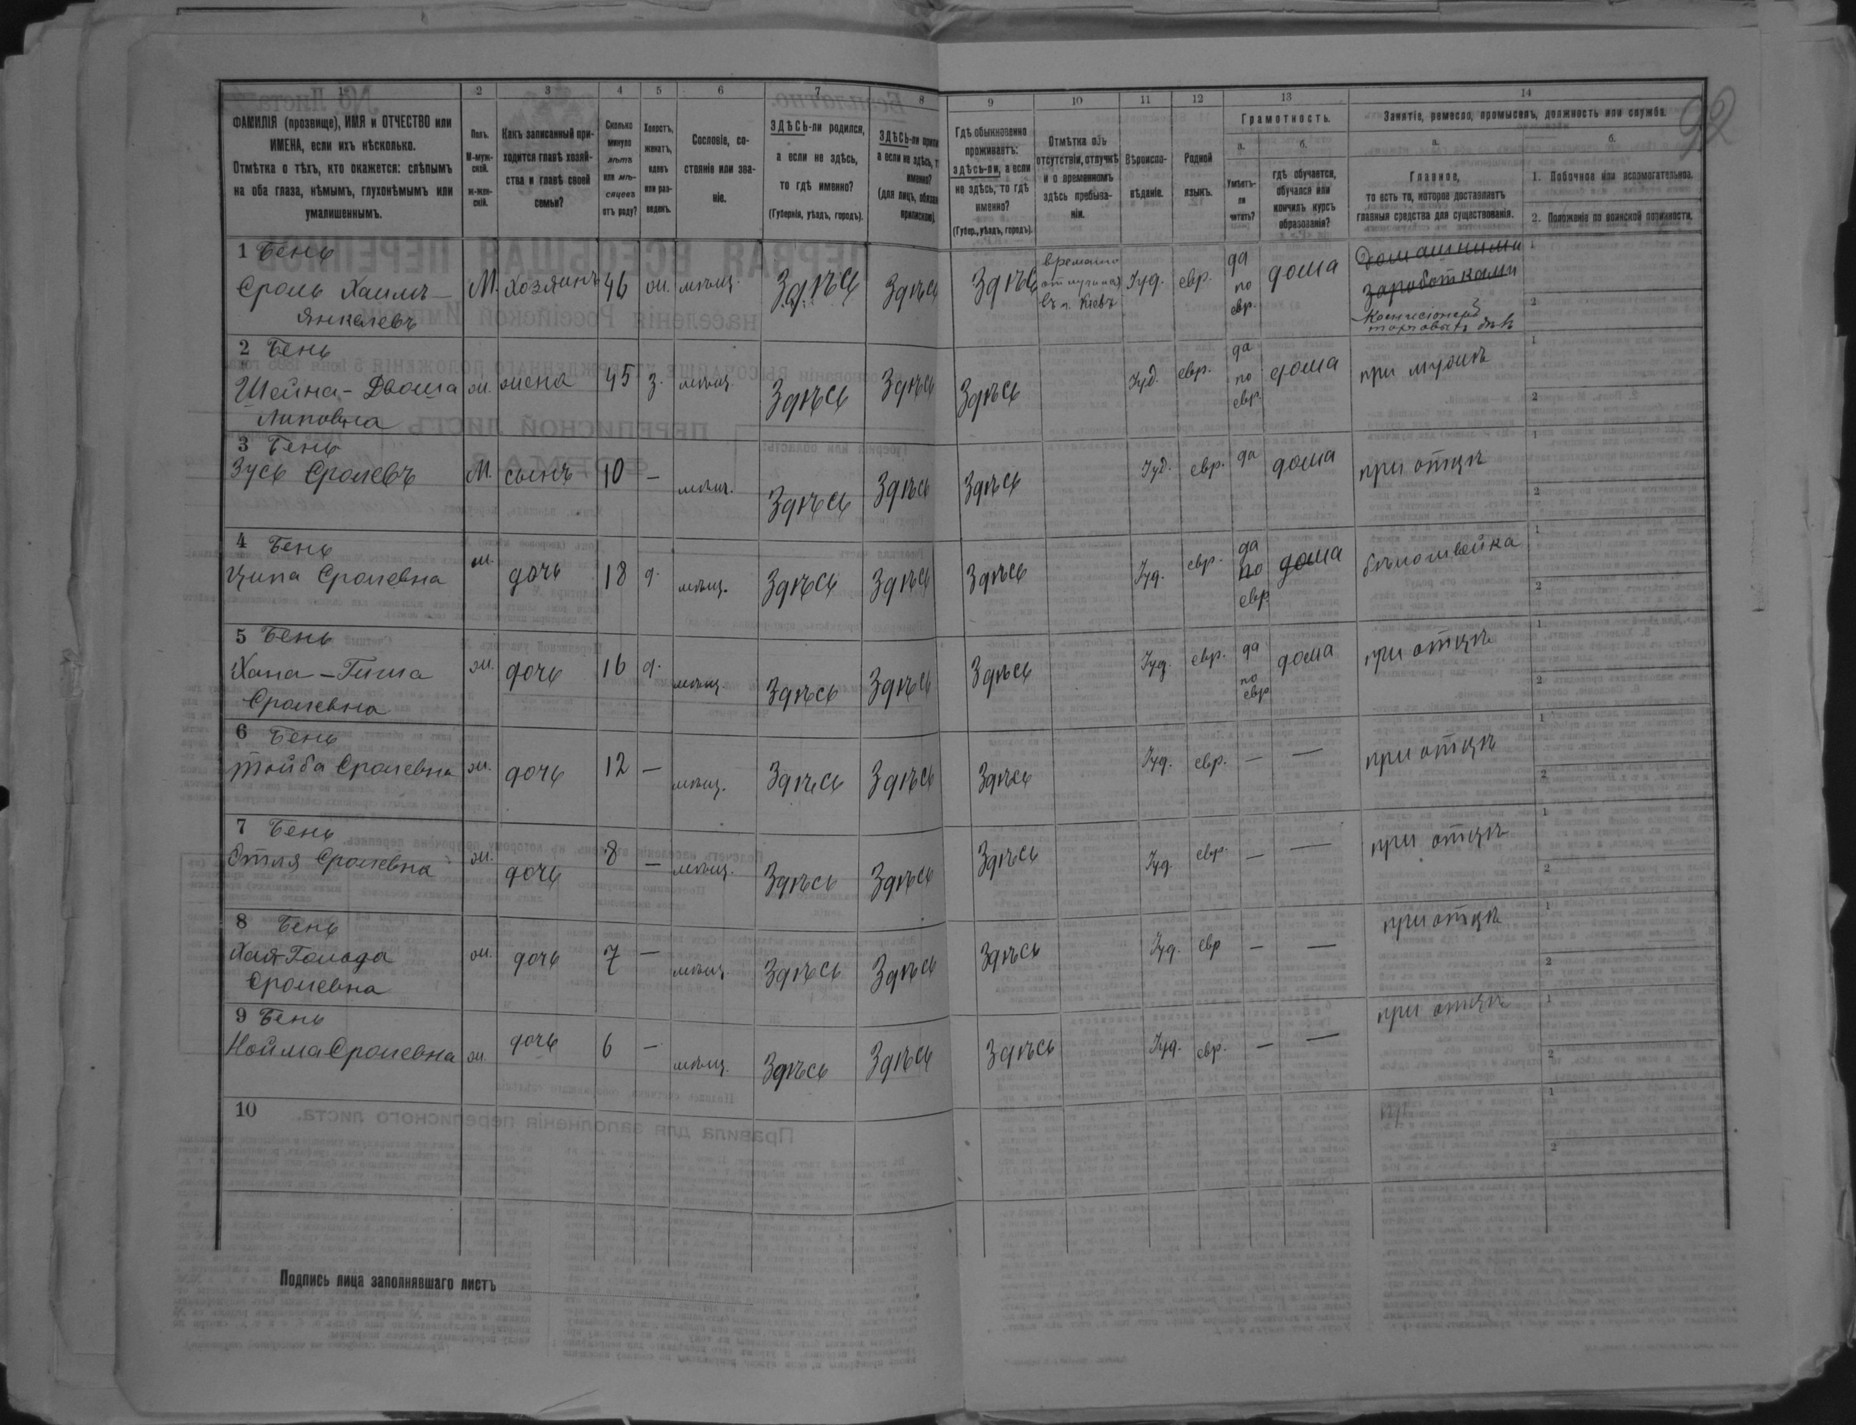 1 2 3 4 5 6 7 8 9 10 11 12 13 14
92
ФАМИЛІЯ (прозвище), ИМЯ и ОТЧЕСТВО или
ИМЕНА, если ихъ нѣсколько.
Отмѣтка о тѣхъ, кто окажется: слѣпымъ
на оба глаза, нѣмымъ, глухонѣмымъ или
умалишеннымъ.
Полъ.
М-муж-
скій.
ж-жен-
скій.
Какъ записанный при-
ходится главѣ хозяй-
ства и главѣ своей
семьи?
Сколько
минуло
лѣтъ
или мѣ-
сяцевъ
отъ роду?
Холостъ,
женатъ,
вдовъ
или раз-
веденъ.
Сословіе, со-
стояніе или зва-
ніе.
ЗДѢСЬ-ли родился,
а если не здѣсь,
то гдѣ именно?
(Губернія, уѣздъ, городъ).
ЗДѢСЬ-ли
а если не здѣсь,
именно?
(для лицъ,
Гдѣ обыкновенно
проживаетъ:
здѣсь-ли, а если
не здѣсь, то гдѣ
именно?
(Губер., уѣздъ, городъ).
Отмѣтка объ
отсутствіи, отлучкѣ
и о временномъ
здѣсь пребыва-
ніи.
Вѣроиспо-
вѣданіе.
Родной
языкъ.
Грамотность.
а. б.
Умѣетъ-
ли
читать?
гдѣ обучается,
обучался или
кончилъ курсъ
образованія?
Занятіе, ремесло, промыселъ, должность или служба.
а. б.
Главное,
то есть то, которое доставляетъ
главныя средства для существованія.
1. Побочное или вспомогательное.
2. Положеніе по воинской повинности.
1 Бень
Сроль Хаимъ-
Янкелевъ
М. хозяинъ 46 ж. мѣщ. Здѣсь Здѣсь Здѣсь
временно
въ г. Кіевъ
Іуд. евр.
да
по
евр.
дома
домашними
заработками
2 Бень
Шейна-Двоша
Липовна
ж. жена 45 з. мѣщ. Здѣсь Здѣсь Здѣсь Іуд. евр.
да
по
евр.
дома при мужѣ
3 Бень
Зусь Сролевъ
М. сынъ 10 — мѣщ. Здѣсь Здѣсь Здѣсь Іуд. евр. да дома при отцѣ
4 Бень
Ципа Сролевна
ж. дочь 18 д. мѣщ. Здѣсь Здѣсь Здѣсь Іуд. евр.
да
по
евр.
дома бѣлошвейка
5 Бень
Хана-Гитла
Сролевна
ж. дочь 16 д. мѣщ. Здѣсь Здѣсь Здѣсь Іуд. евр.
да
по
евр.
дома при отцѣ
6 Бень
Тойба Сролевна
ж. дочь 12 — мѣщ. Здѣсь Здѣсь Здѣсь Іуд. евр. — — при отцѣ
7 Бень
Этля Сролевна
ж. дочь 8 — мѣщ. Здѣсь Здѣсь Здѣсь Іуд. евр. — — при отцѣ
8 Бень
Сролевна
ж. дочь 7 — мѣщ. Здѣсь Здѣсь Здѣсь Іуд. евр — — при отцѣ
9 Бень
Сролевна
ж. дочь 6 — мѣщ. Здѣсь Здѣсь Здѣсь Іуд. евр. — — при отцѣ
10
Подпись лица заполнявшаго листъ